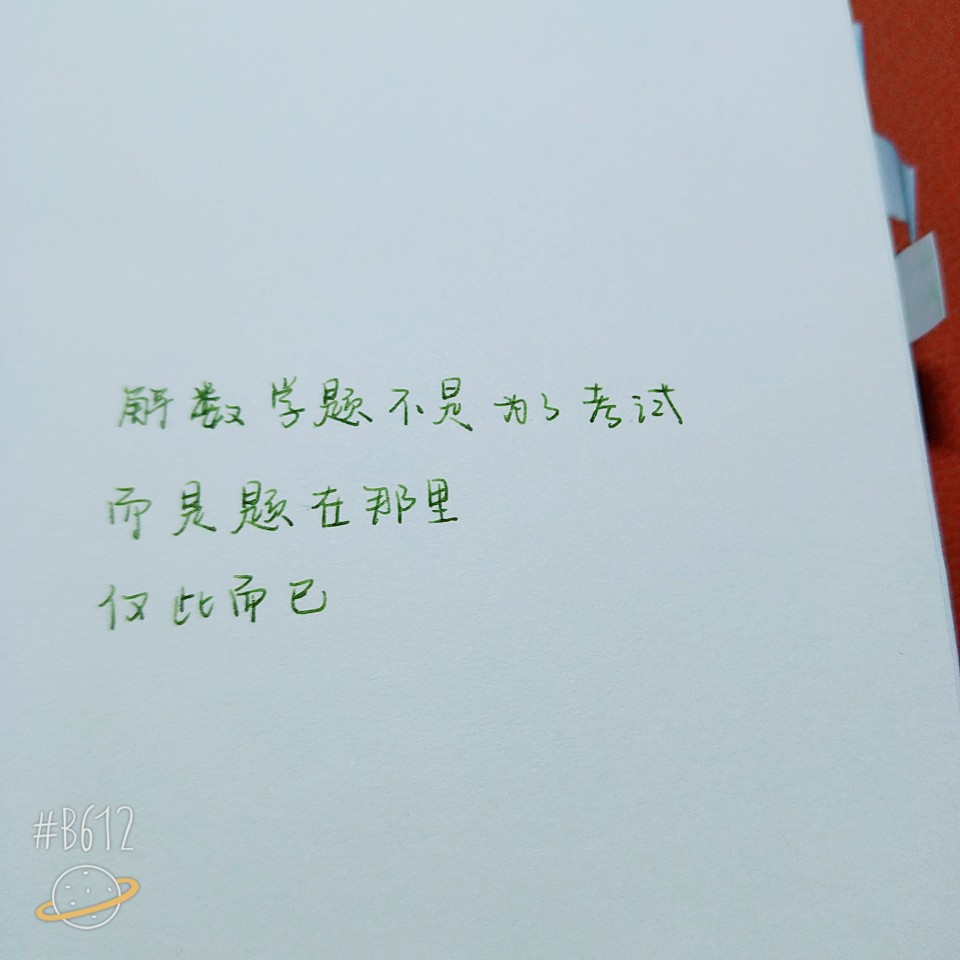 解数学题不是为了考试
而是题在那里
仅此而已
#B612